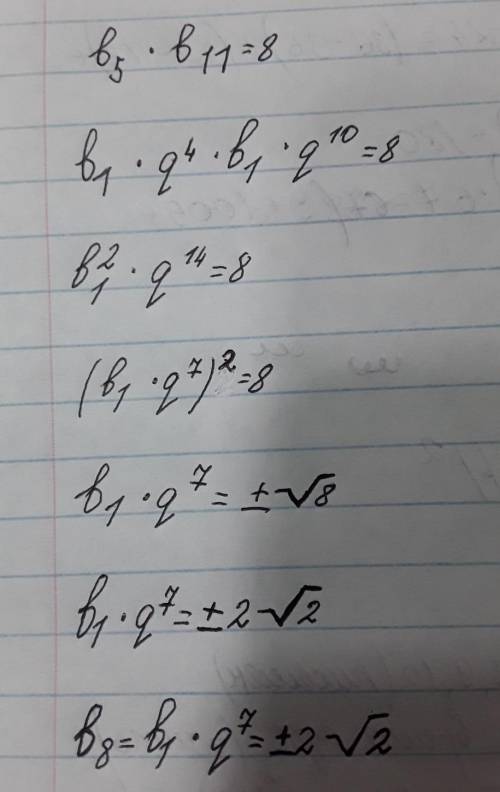 b₅ · b₁₁ = 8
b₁ · q⁴ · b₁ · q¹⁰ = 8
b₁² · q¹⁴ = 8
(b₁ · q⁷)² = 8
b₁ · q⁷ = ±√8
b₁ · q⁷ = ±2√2
b₈ = b₁ · q⁷ = ±2√2